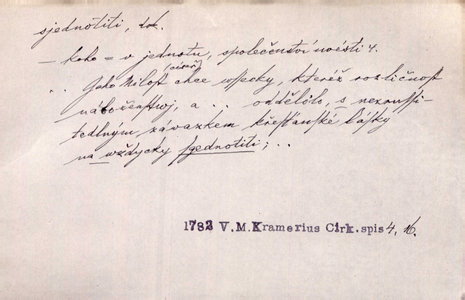 sjednotiti, dok.
— koho = v jednotu, společenství uvésti 4.
(císař)
.. Jeho Milost chce wssecky, kteréž rozličnost
náboženstwj, a ... oddělilo, s nezrussi-
tedlným závazkem křesťanské lásky
na wždycky sgednotiti; ..
1782 V.M.Kramerius Cirk.spis 4, 16.